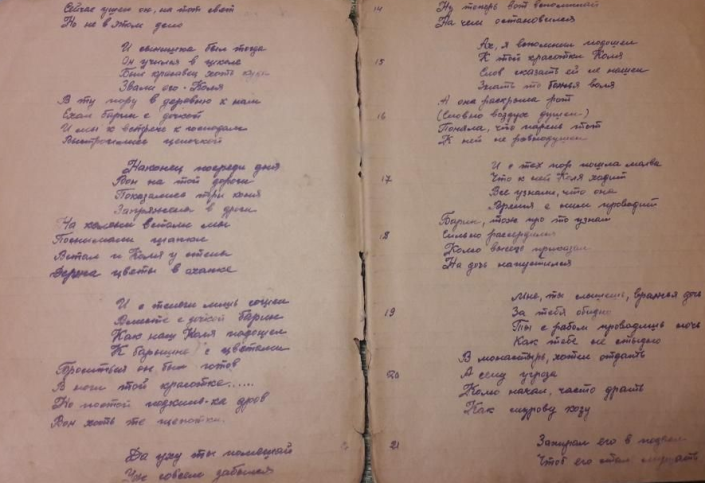 Сейчас ушел он, на тот свет
Но не в этом дело
И сынишка был тогда
Он учился в школе
Был красавец хоть куда
Звали его - Коля
В ту пору в деревню к нам
Ехал барин с дочкой
И мы к встрече к господам
Выстроились цепочкой
Наконец посреди дня
Вон на той дороге
Показались три коня
Запряженных в дроги
На колени встали мы
Поснимали шапки
Встал и Коля у стены
Держа цветы в охапке
И с телеги лишь сошел
Вместе с дочкой барин
Как наш Коля подошел
К барышне с цветами
Броситься он был готов
В ноги той красотке......
Но постой подкинь-ка дров
Вон хоть те щепотки.
Да уху ты помешай
Уж совсем забылся
14
Ну теперь вот вспоминай
На чем остановился
15
Ах, я вспомнил подошел
К той красотке Коля
Слов сказать ей не нашел
Знать то божья воля
16
А она раскрыла рот
(Словно воздух душен-)
Поняла, что парень тот
К ней не равнодушен
17
И с тех пор пошла молва
Что к ней Коля ходит
Все узнали, что она
Время с ним проводит
18
Барин, тоже про то узнал
Сильно рассердился
Колю выпороть
На дочь напустился
19
Мне, ты слышишь, вражья дочь
За тебя обидно
Ты с рабом проводишь ночь
Как тебе не стыдно
20
В монастырь, хотел отдать
А ему угроза
Колю начал, часто драть
Как сидорову козу
21
Запирал его в подвал
Чтоб его там